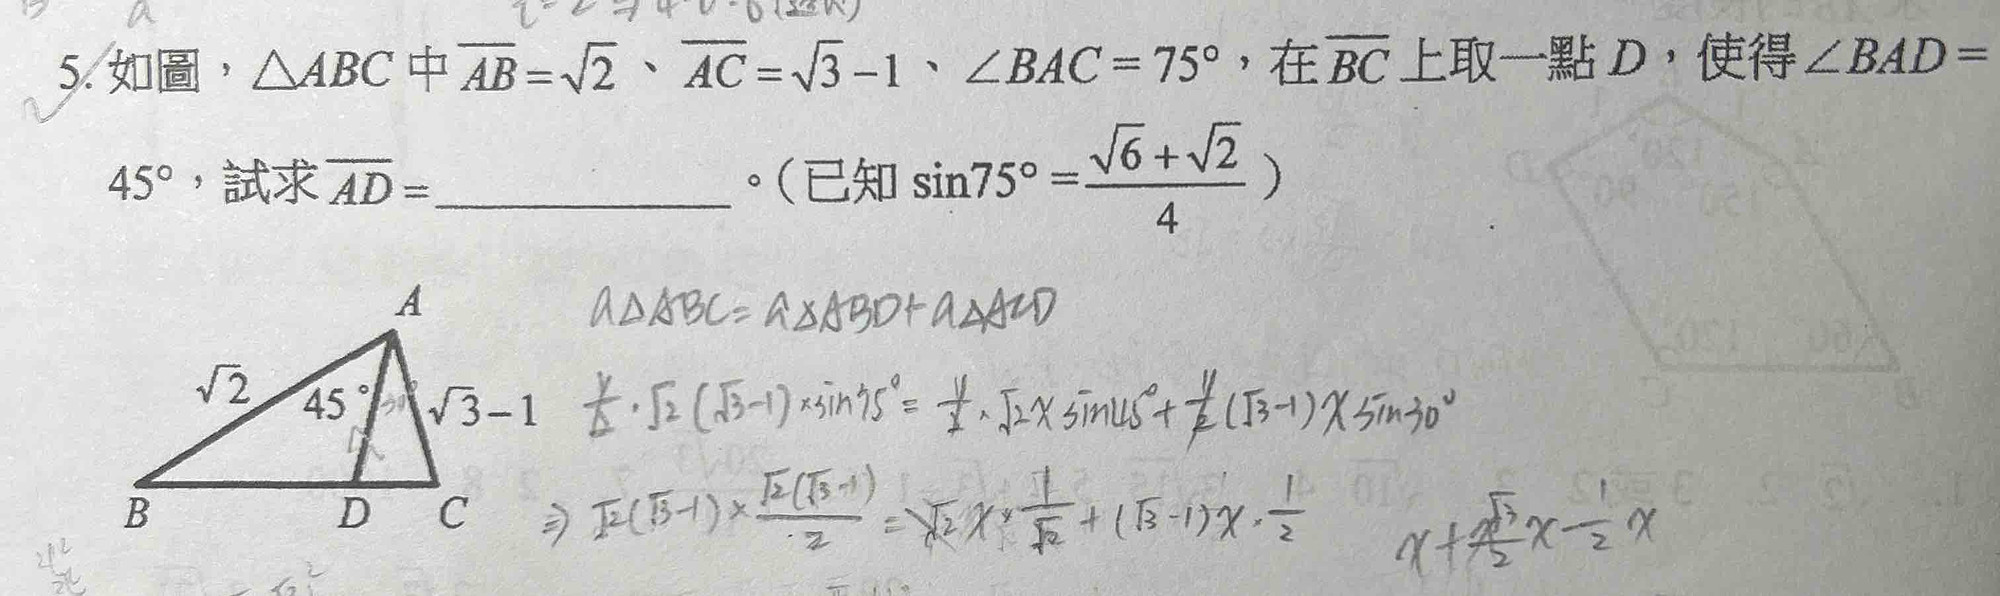 5. 如圖，△ABC 中 \overline{AB} = √2、\overline{AC} = √3 − 1、∠BAC = 75°，在 \overline{BC} 上取一點 D，使得∠BAD =
45°，試求 \overline{AD} = ＿＿＿＿＿＿。（已知 sin75° = \frac{√6 + √2}{4}）
A
√2 45° √3 − 1
B D C
a△ABC = a△ABD + a△ACD
√2(√3-1)×sin75° = √2 x sin45° + (√3-1) x sin30°
⇒ √2(√3-1) × \frac{√2(√3-1)}{2} = √2 x × \frac{1}{√2} + (√3-1)x · \frac{1}{2}
x + \frac{√3}{2}x - \frac{1}{2}x